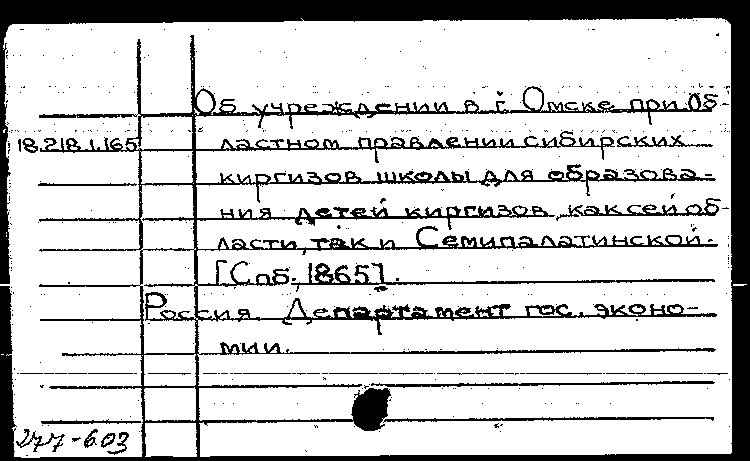 Об учреждении в г. Омске при Об-
18.218.1.165 ластном правлении сибирских
киргизов школы для образова-
ния детей киргизов, как сей об-
ласти, так и Семипалатинской.
[Спб., 1865].
Россия. Департамент гос. эконо-
мии.
277-603